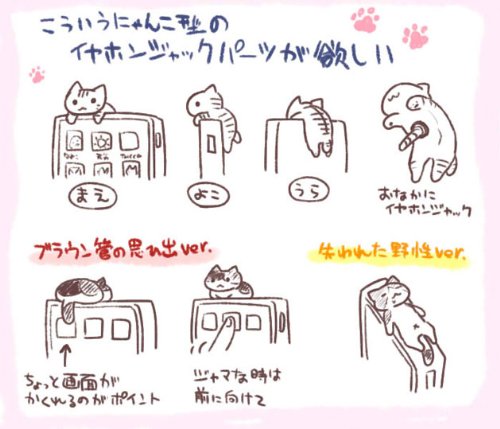 こういうにゃんこ型の
イヤホンジャックパーツが欲しい
まえ
よこ
うら
おなかに
イヤホンジャック
ブラウン管の思ひ出ver.
失われた野性ver.
ちょっと画面が
かくれるのがポイント
ジャマな時は
前に向けて